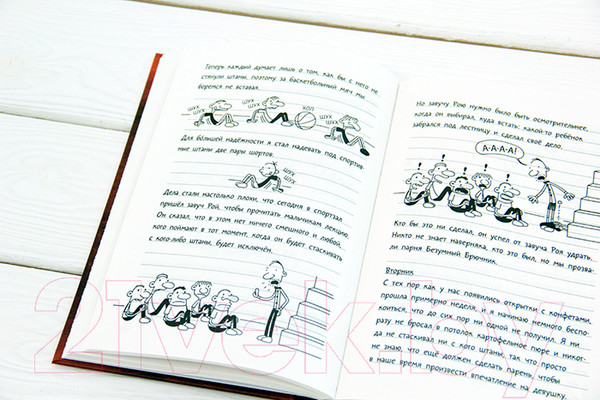 Теперь каждый думает лишь о том, как бы с него не
стянули штаны, поэтому за баскетбольный мяч мы
боремся не вставая.
ШУХ
ШУХ
ШУХ
ШУХ
ХОП
ШУХ
ШУХ
Для бо́льшей надёжности я стал надевать под спортив-
ные штаны две пары шортов.
ШУХ
ШУХ
Дела стали настолько плохи, что сегодня в спортзал
пришёл завуч Рой, чтобы прочитать мальчикам лекцию.
Он сказал, что в этом нет ничего смешного и любой,
кого поймают в тот момент, когда он будет стаскивать
с кого-либо штаны, будет исключён.
Но завучу Рою нужно было быть осмотрительнее,
когда он выбирал, куда встать: какой-то ребёнок
забрался под лестницу и сделал своё дело.
А-А-А-А!
Кто бы это ни сделал, он успел от завуча Роя удрать.
Никто не знает наверняка, кто это был, но мы прозва-
ли парня Безумный Брючник.
Вторник
С тех пор как у нас появились открытки с конфетами,
прошла примерно неделя, и я начинаю немного беспо-
коиться, что до сих пор ни одной не получил. Я ни
разу не бросал в потолок картофельное пюре и никог-
да не стаскивал ни с кого штаны, так что просто
не знаю, что ещё должен сделать парень, чтобы
в наше время произвести впечатление на девушку.
21vek.by